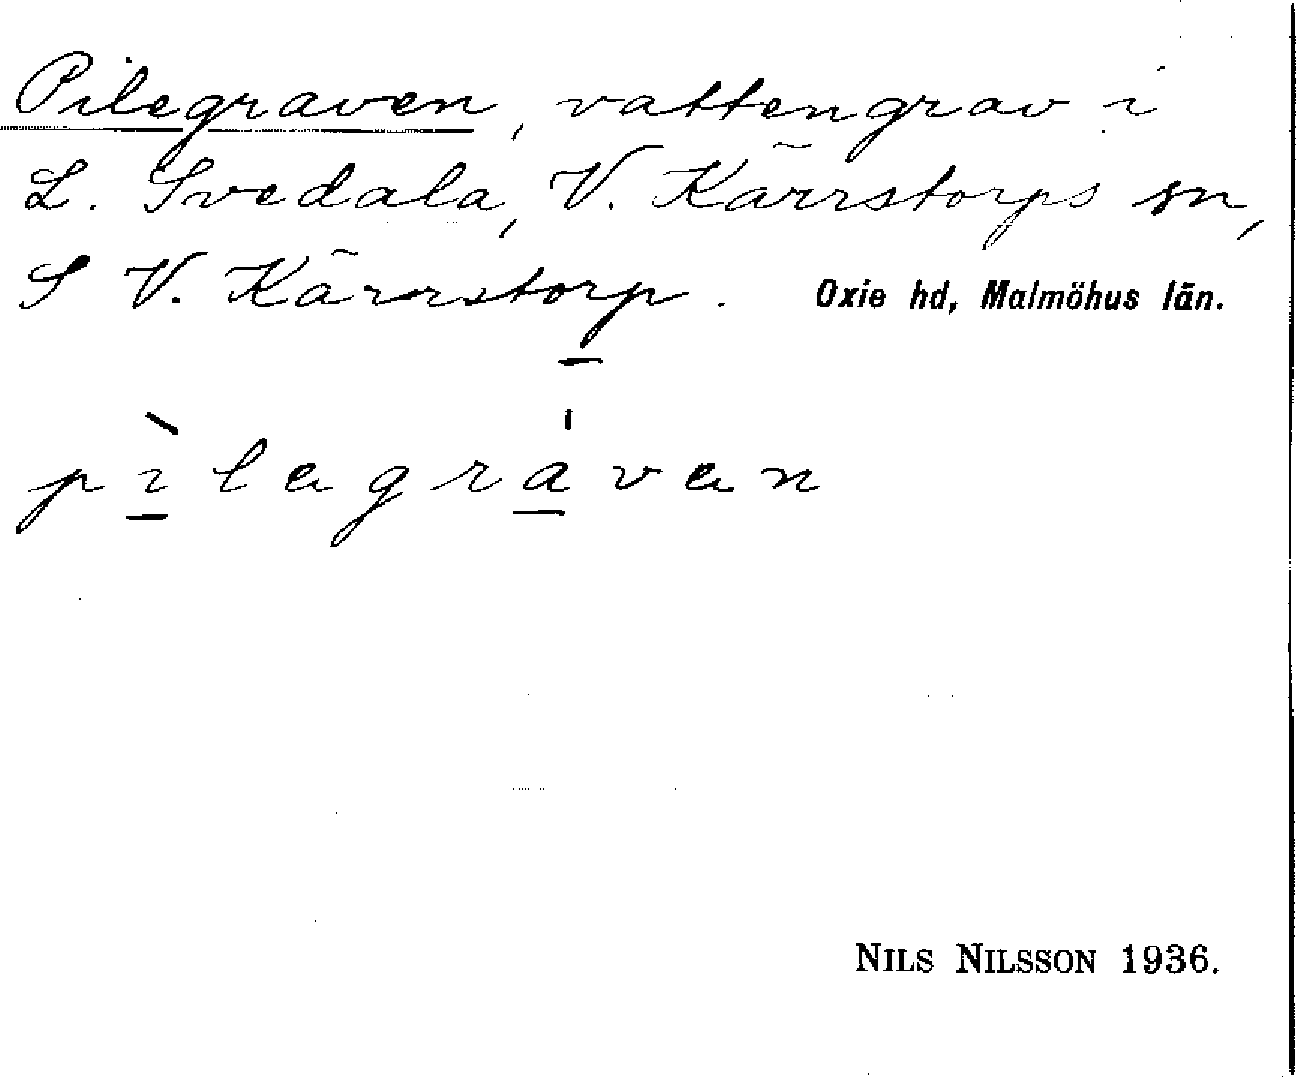 Pilegraven, vattengrav i
L. Svedala, V. Kärrstorps sn,
S V. Kärrstorp. Oxie hd, Malmöhus län.
pìlagrávan
NILS NILSSON 1936.